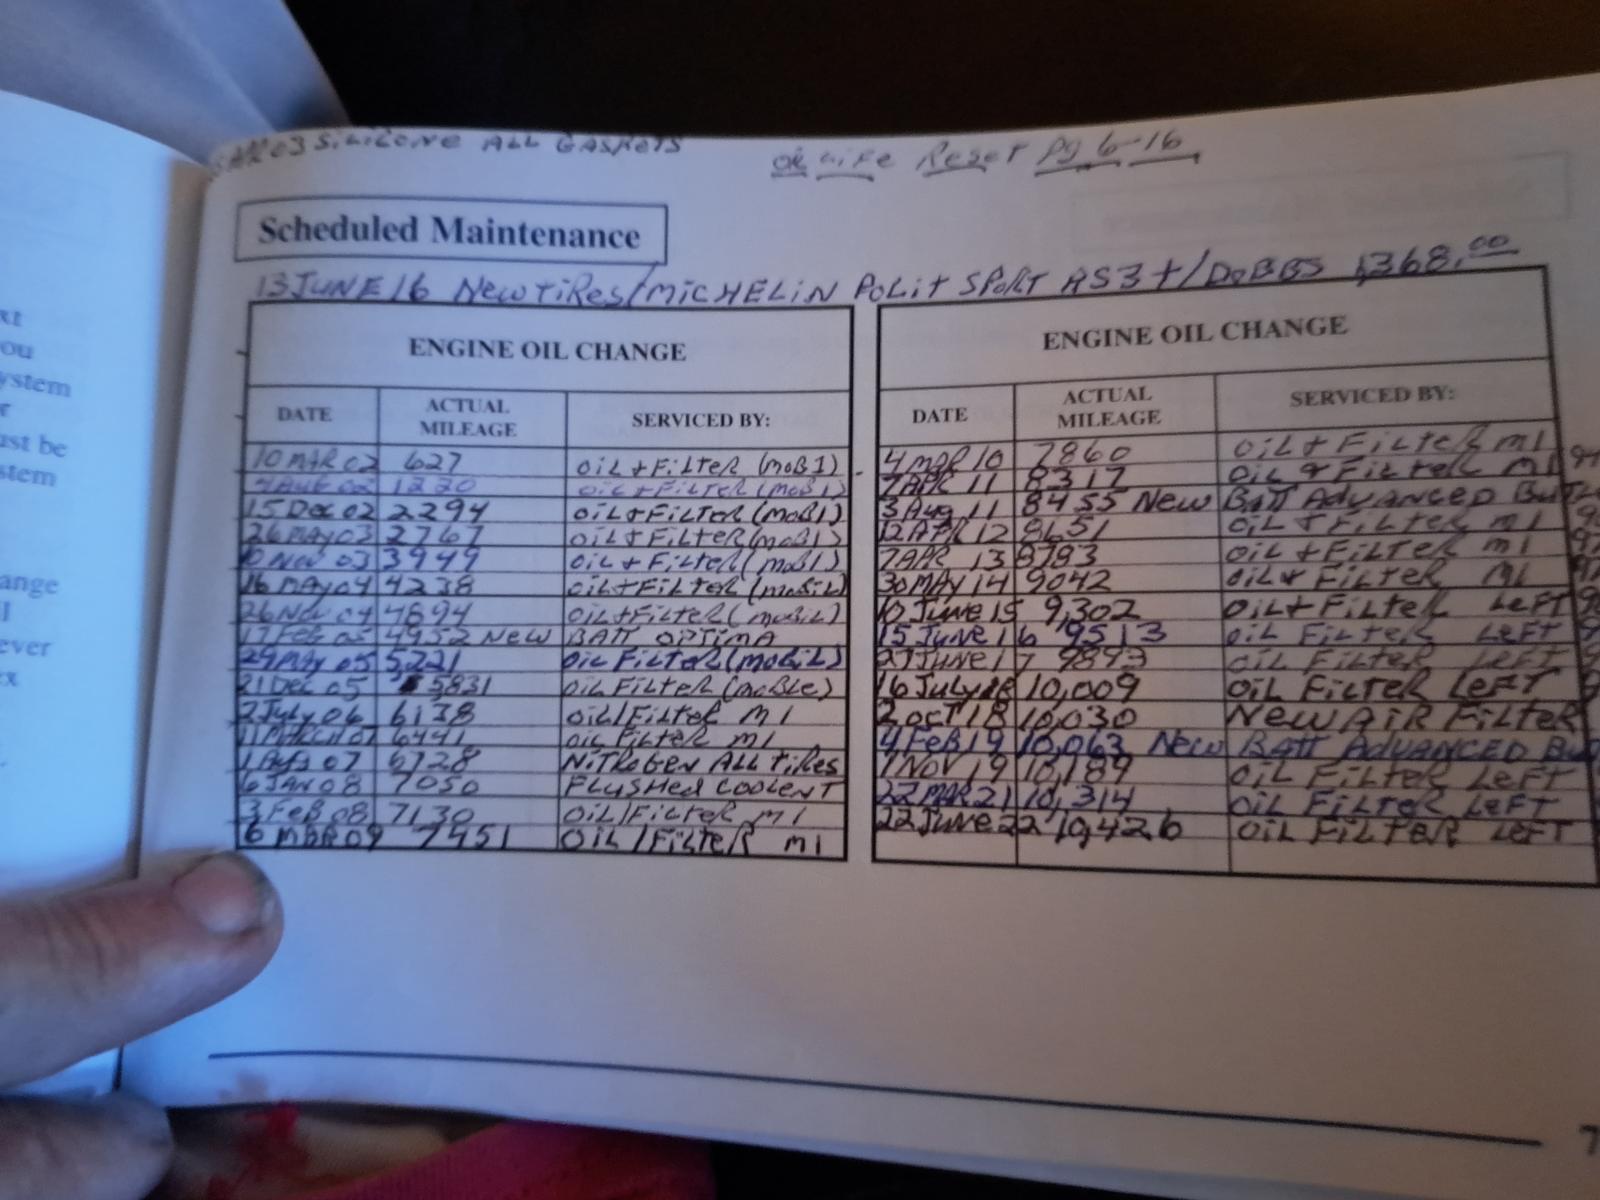 APR 03 SILICONE ALL GASKETS
OiL LiFe Reset Pg 6-16
Scheduled Maintenance
13 JUNE 16 New TiRes/MICHELIN POLiT SPORT AS3+/DOBBS 1,368.00
ENGINE OIL CHANGE
DATE ACTUAL MILEAGE SERVICED BY:
10 MAR 02 627 OiL + FiLTER (MOB1)
4 AUG 02 1220 OiL + FiLTER (MOB1)
15 Dec 02 2294 OiL + FiLTER (MOB1)
26 MAY 03 2767 OiL + FiLTER (MOB1)
10 Nov 03 3949 OiL + FiLTER (MOB1)
16 MAY 04 4238 OiL + FiLTER (MOBiL)
26 Nov 04 4694 OiL + FiLTER (MOBiL)
17 Feb 05 4952 New BATT OPTiMA
29 MAY 05 5221 OiL FiLTER (MOBiL)
21 Dec 05 5831 OiL FiLTER (MOBLe)
2 July 06 6138 OiL/FiLTER M1
11 MARCH 07 6441 OiL FiLTER M1
1 AUG 07 6728 NiTROGEN ALL TiRes
6 JAN 08 7050 FLUSHED COOLENT
3 FeB 08 7130 OiL/FiLTER M1
6 MAR 09 7451 OiL/FiLTER M1
ENGINE OIL CHANGE
DATE ACTUAL MILEAGE SERVICED BY:
4 MAR 10 7860 OiL + FiLTER M1
7 APR 11 8317 OiL + FiLTER M1
3 Aug 11 8455 New BATT ADVANCED
12 APR 12 8651 OiL + FiLTER M1
7 APR 13 8793 OiL + FiLTER M1
30 MAY 14 9042 OiL + FiLTER M1
10 June 15 9,302 OiL + FiLTER LeFT
15 June 16 9513 OiL FiLTER LeFT
27 JUNE 17 9893 OiL FiLTER LeFT
16 July 18 10,009 OiL FiLTER LeFT
2 OCT 18 10,030 New AiR FiLTER
4 FeB 19 10,063 New BATT ADVANCED
1 NOV 19 10,189 OiL FiLTER LeFT
22 MAR 21 10,314 OiL FiLTER LeFT
22 JUNE 22 10,426 OiL FiLTER LeFT
7
xt
you
ystem
r
ust be
stem
ange
l
ever
ex